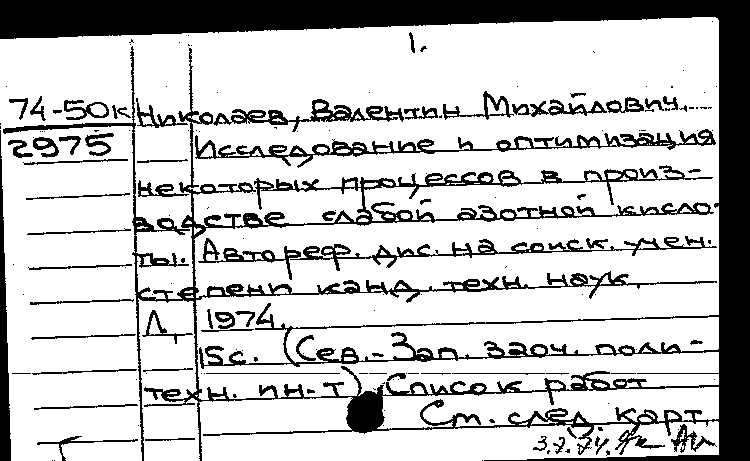 1.
74-50к Николаев, Валентин Михайлович.
2975 Исследование и оптимизация
некоторых процессов в произ-
водстве слабой азотной кисло-
ты. Автореф. дис. на соиск. учен.
степени канд. техн. наук.
Л., 1974.
15с. (Сев.-Зап. заоч. поли-
техн. ин-т). Список работ
См. след. карт.